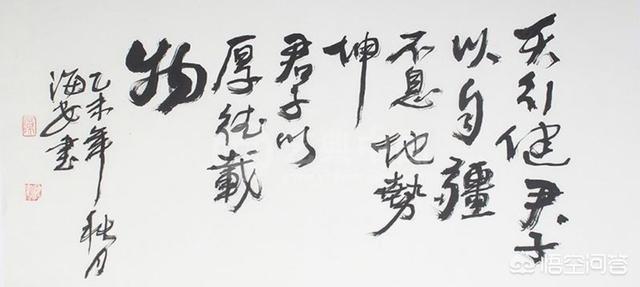 天行健君子
以自疆
不息地勢
坤
君子以
厚德載
物
乙未年秋月
海安書
悟空问答